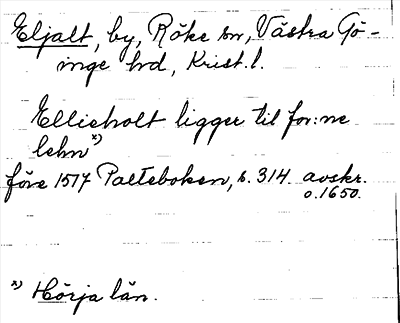 Eljalt, by, Röke sn, Västra Gö-
inge hd, Krist. l.
Ellieholt ligger til for:ne
lehn x)
före 1517 Palteboken, s. 314. avskr.
o. 1650.
x) Hörja län.